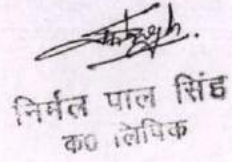 निर्मल पाल सिंह
क० लिपिक